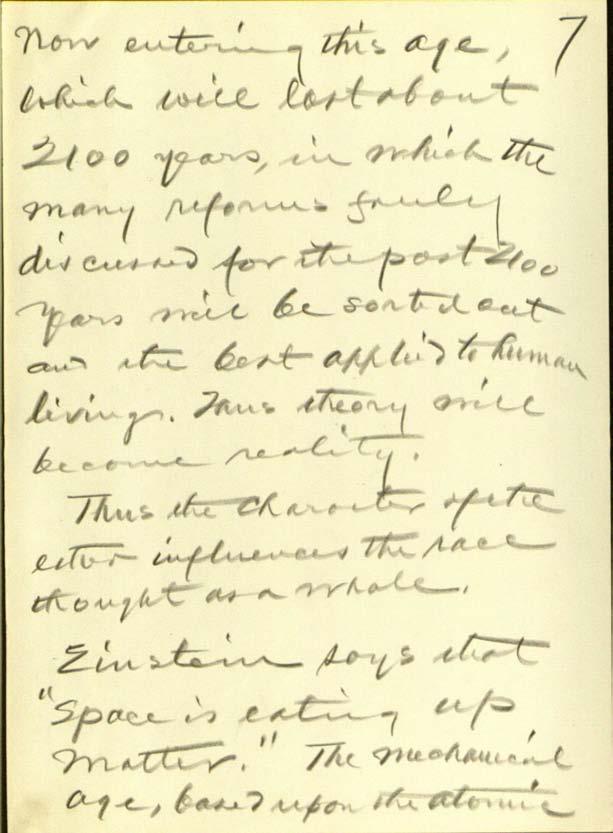 7
now entering this age,
which will last about
2100 years, in which the
many reforms freely
discussed for the past 2100
years will be sorted out
and the best applied to human
living. Thus theory will
become reality.
Thus the character of the
ether influences the race
thought as a whole.
Einstein says that
"Space is eating up
matter." The mechanical
age, based upon the atomic